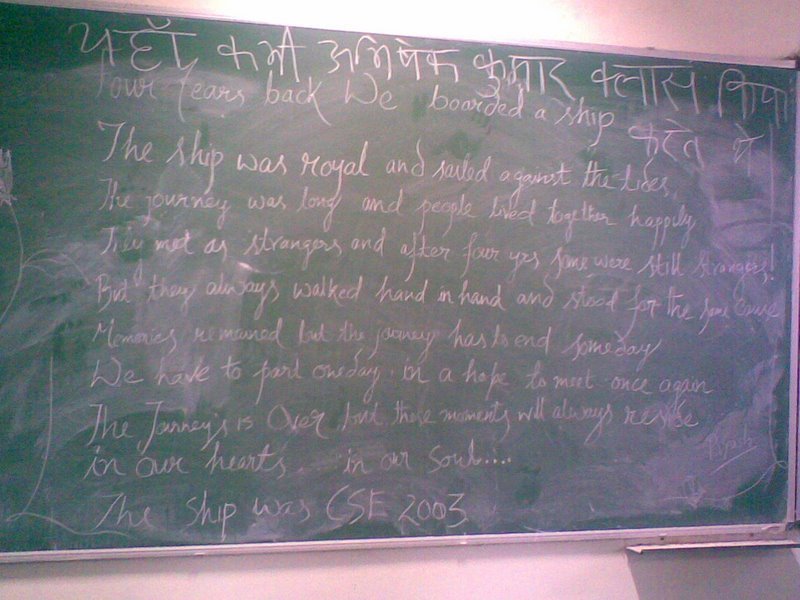 यहाँ कभी अभिषेक कुमार क्लास किया
करते थे
Four Years back We boarded a ship
The ship was royal and sailed against the tides
The journey was long and people lived together happily
They met as strangers and after four yrs some were still strangers!
But they always walked hand in hand and stood for the same cause
Memories remained but the journey has to end someday
We have to part oneday in a hope to meet once again
The Journey's is Over but those moments will always reside
in our hearts, in our soul....
The ship was CSE 2003